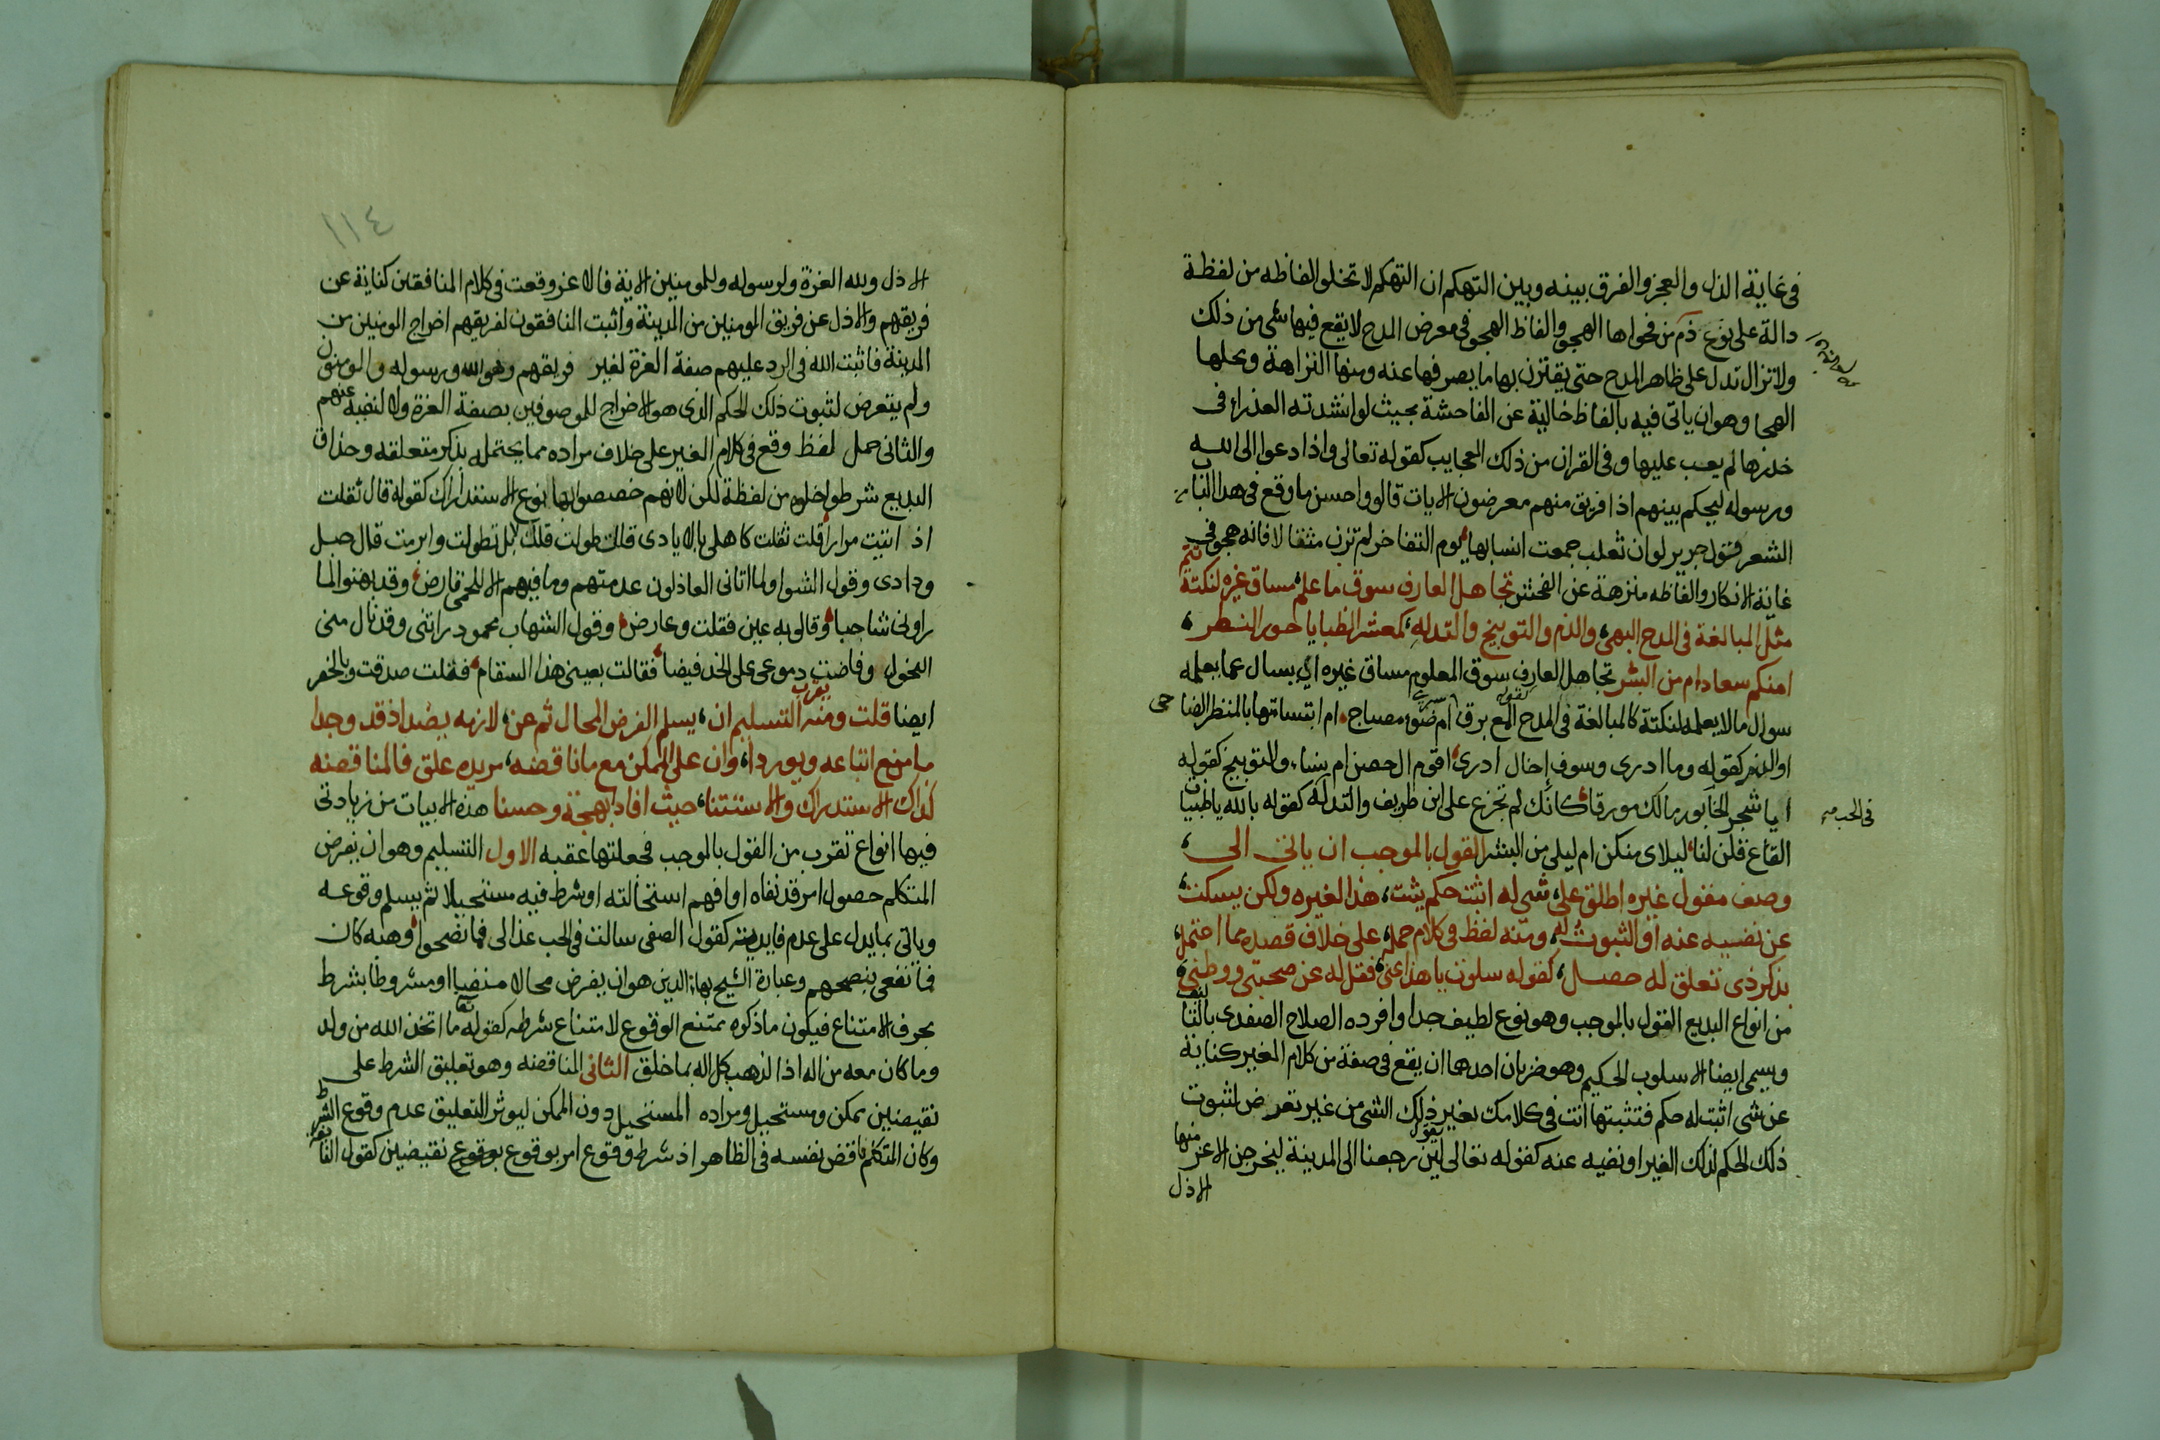 في غاية الذل والعجز والفرق بينه وبين التهكم ان التهكم لا تخلو الفاظه من لفظة
دالة على نوع ذم من فحواها الهجو والفاظ الهجو في معرض المدح لا يقع فيها شي من ذلك
ولا تزال تدل على ظاهر المدح حتى يقترن بها ما يصرفها عنه ومنها النزاهة ومحلها
الهجا وهو ان ياتى فيه بالفاظ خالية عن الفاحشة بحيث لو انشدته العذراء في
خدرها لم يعب عليها وفي القران من ذلك العجايب كقوله تعالى واذا دعوا الى الله
ورسوله ليحكم بينهم اذا فريق منهم معرضون الايات قالوا واحسن ما وقع في هذا الباب من
الشعر قول جرير لو ان ثعلب جمعت انسابها يوم التفاخر لم تزن مثقالا فانه هجو في
غاية الانكار والفاظه منزهة عن الفحش تجاهل العارف سوق ما علم مساق غيره لنكتة تتم
مثل المبالغة في المدح البهى والذم والتوبيخ والتدله كمعشر الظبايا حور النظر
امنكم سعاد ام من البشر تجاهل العارف سوق المعلوم مساق غيره اي يسال عما يعلمه
سوال مالا يعلمه لنكتة كالمبالغة في المدح كقوله المع برق سرى ام ضوء مصباح ام ابتسامتها بالمنظر الضاحى
او الذم كقوله وما ادرى وسوف إخال ادرى اقوم ال حصن ام نساء والتوبيخ كقوله
ايا شجر الخابور مالك مورقا كانك لم تجزع على ابن طريف والتدله كقوله بالله يا ظبيات
في الحب صح
القاع قلن لنا ليلاى منكن ام ليلى من البشر القول بالموجب ان ياتى الى
وصف مقول غيره اطلق على شى له اثبت حكم يثبت هذا لغيره ولكن يسكت
عن نفسيه عنه او الثبوت له ومنه لفظ في كلام حمله على خلاف قصده مما احتمل
بذكر ذى تعلق له حصل كقوله سلوت يا هذا عنى فقل له عن صحبتى ووطنى
من انواع البديع القول بالموجب وهو نوع لطيف جدا وافرده الصلاح الصفدى بالتاليف
ويسمى ايضا الاسلوب الحكيم وهو ضربان احدها ان يقع في صفة من كلام الغير كناية
عن شى اثبت له حكم فتثبتها انت في كلامك بغير ذلك الشى من غير تعرض لثبوت
ذلك الحكم لذلك الغير او نفيه عنه كقوله تعالى يقولون لئن رجعنا الى المدينة ليخرجن الاعز منها
الاذل
١١٤
الاذل ولله العزة ولرسوله وللمومنين الاية فالاعز وقعت في كلام المنافقين كناية عن
فريقهم والاذل عن فريق المومنين من المدينة واثبت المنافقون لفريقهم اخراج المومنين من
المدينة فاثبت الله في الرد عليهم صفة العزة لغير فريقهم وهو الله ورسوله والمومنون
ولم يتعرض لثبوت ذلك الحكم الذى هو الاخراج للموصوفين بصفة العزة ولا لنفيه عنهم
والثانى حمل لفظ وقع في كلام الغير على خلاف مراده مما يحتمله بذكر متعلقه وحذاق
البديع شرطوا خلوه من لفظة لكن لانهم خصصوا بها نوع الاستدراك كقوله قال ثقلت
اذ اتيت مرارا قلت ثقلت كاهلى بالايادى قال طولت قلت لا بل تطولت وابرمت قال حبل
ودادى وقول الشوا ولما اتانى العاذلون عدمتهم وما فيهم الا للحمى قارض وقد بهتوا لما
راونى شاحبا وقالوا به عين فقلت وعارض وقول الشهاب محمود راتنى وقد نال منى
النحول وفاضت دموعى على الخد فيضا فقالت بعينى هذا السقام فقلت صدقت وبالخصر
ايضا قلت ومنه يقرب التسليم ان يسلم الفرض المحال ثم عن لازمه يصد اذ قد وجدا
ما منع اتباعه ويوردا وان على الممكن مع ما ناقضه مريده علق فالمناقضه
كذاك الاستدراك والاستثنا حيث افاد بهجة وحسنا هذه الابيات من زيادتى
فيها انواع تقرب من القول بالموجب فجعلتها عقبه الاول التسليم وهو ان يفرض
المتكلم حصول امر قد نفاه او افهم استحالته او شرط فيه مستحيلا ثم يسلم وقوعه
وياتى بما يدل على عدم فايدته كقول الصفى سالت في الحب عذالى فما نصحوا وهبه كان
فما نفعى بنصحهم وعبارة الشيخ بها الدين هو ان يفرض محالا منفيا او مشروطا بشرط
بحرف الامتناع فيكون ما ذكره ممتنع الوقوع لامتناع شرطه كقوله تعالى ما اتخذ الله من ولد
وما كان معه من اله اذا لذهب كل اله بما خلق الثانى المناقضه وهو تعليق الشرط على
نقيضين ممكن ومستحيل ومراده المستحيل دون الممكن ليوثر التعليق عدم وقوع الشرط
وكان المتكلم ناقض نفسه في الظاهر اذ شرط وقوع امر بوقوع نقيضين كقول النابغة